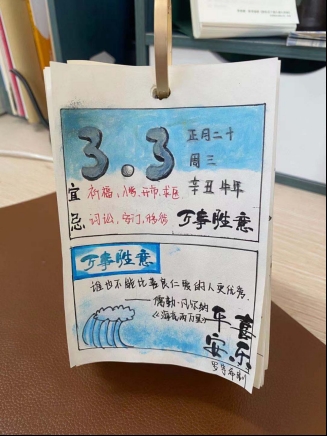 3.3
正月二十
周三
辛丑牛年
宜 祈福、入学、开市、求医
忌 词讼、安门、移徙
万事胜意
万事胜意
谁也不能比善良仁慈的人更优秀.
——儒勒·凡尔纳
《海底两万里》
平安
喜乐